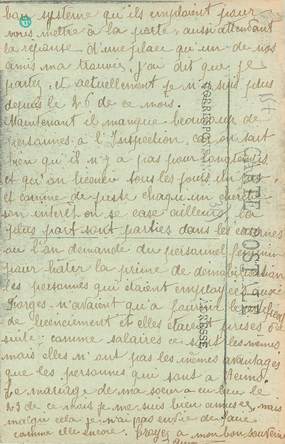 bon système qu'ils emploient pour
nous mettre à la porte; aussi attendant
la réponse d'une place qu'un de nos
amis m'a trouvée, j'ai dit que je
partez, et actuellement je n'y suis plus
depuis le 26 de ce mois.
Maintenant il manque beaucoup de
personnes à l'Inspection, car on sait
bien qu'il n'y a pas pour longtemps
et qu'on licencie tous les jours un peu,
et comme de juste chacun cherche
son intérêt on se case ailleurs, la
plus part sont parties dans les casernes
où l'on demande du personnel féminin
pour hâter la prime de démobilisation
les personnes qui étaient employées aux
Forges n'avaient qu'à fournir le certificat
de licenciement et elles étaient prises de
suite; comme salaires ce sont les mêmes
mais elles n'ont pas les mêmes avantages
que les personnes qui sont à
Le mariage de ma sœur a eu lieu le
23 de ce mois je me suis bien amusée, mais
malgré cela je n'ai pas envie de faire
comme elle encore. Croyez à mon bon souvenir
CARTE POSTALE
CORRESPONDANCE
ADRESSE